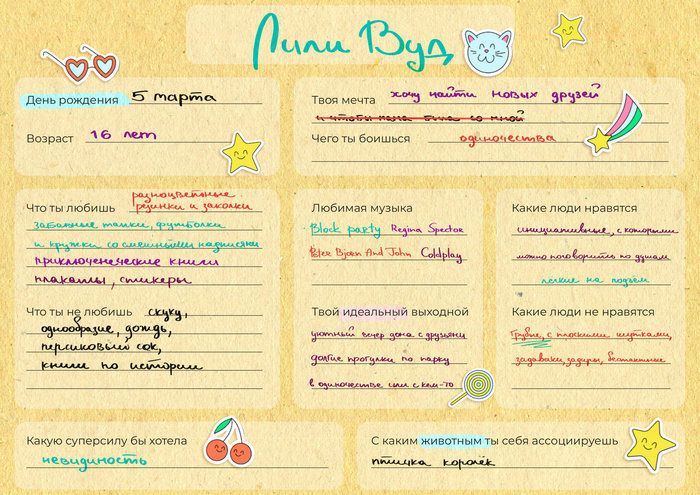 Лили Вуд
День рождения 5 марта
Возраст 16 лет
Твоя мечта хочу найти новых друзей
и чтобы мама была со мной
Чего ты боишься одиночества
Что ты любишь разноцветные
резинки и заколки
забавные тапки, футболки
и кружки со смешными надписями
приключенческие книги
плакаты, стикеры
Что ты не любишь скуку,
однообразие, дождь,
персиковый сок,
книги по истории
Любимая музыка
Block party Regina Spector
Peter Bjorn And John Coldplay
Твой идеальный выходной
уютный вечер дома с друзьями
долгие прогулки по парку
в одиночестве или с кем-то
Какие люди нравятся
инициативные, с которыми
можно поговорить по душам
легкие на подъём
Какие люди не нравятся
Грубые, с плоскими шутками,
задаваки, задиры, бестактные
Какую суперсилу бы хотела
невидимость
С каким животным ты себя ассоциируешь
птичка королёк